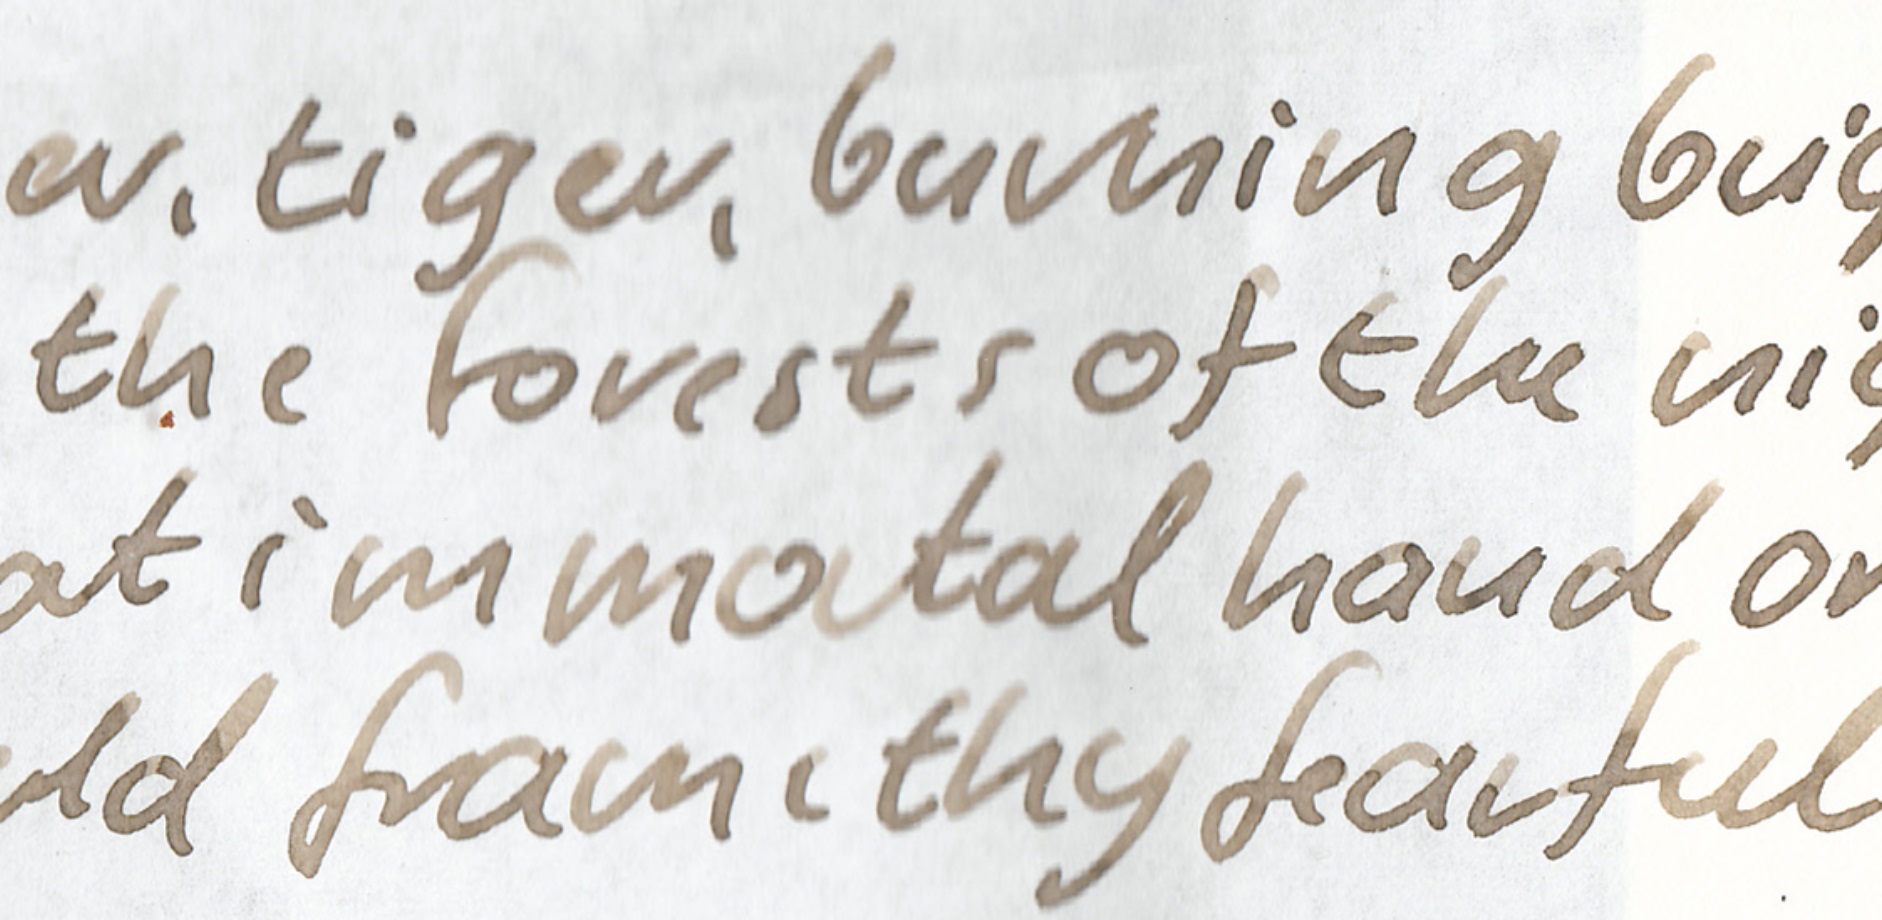 er, tiger, burning brig
the forests of the nig
at immortal hand or
uld frame thy fearful